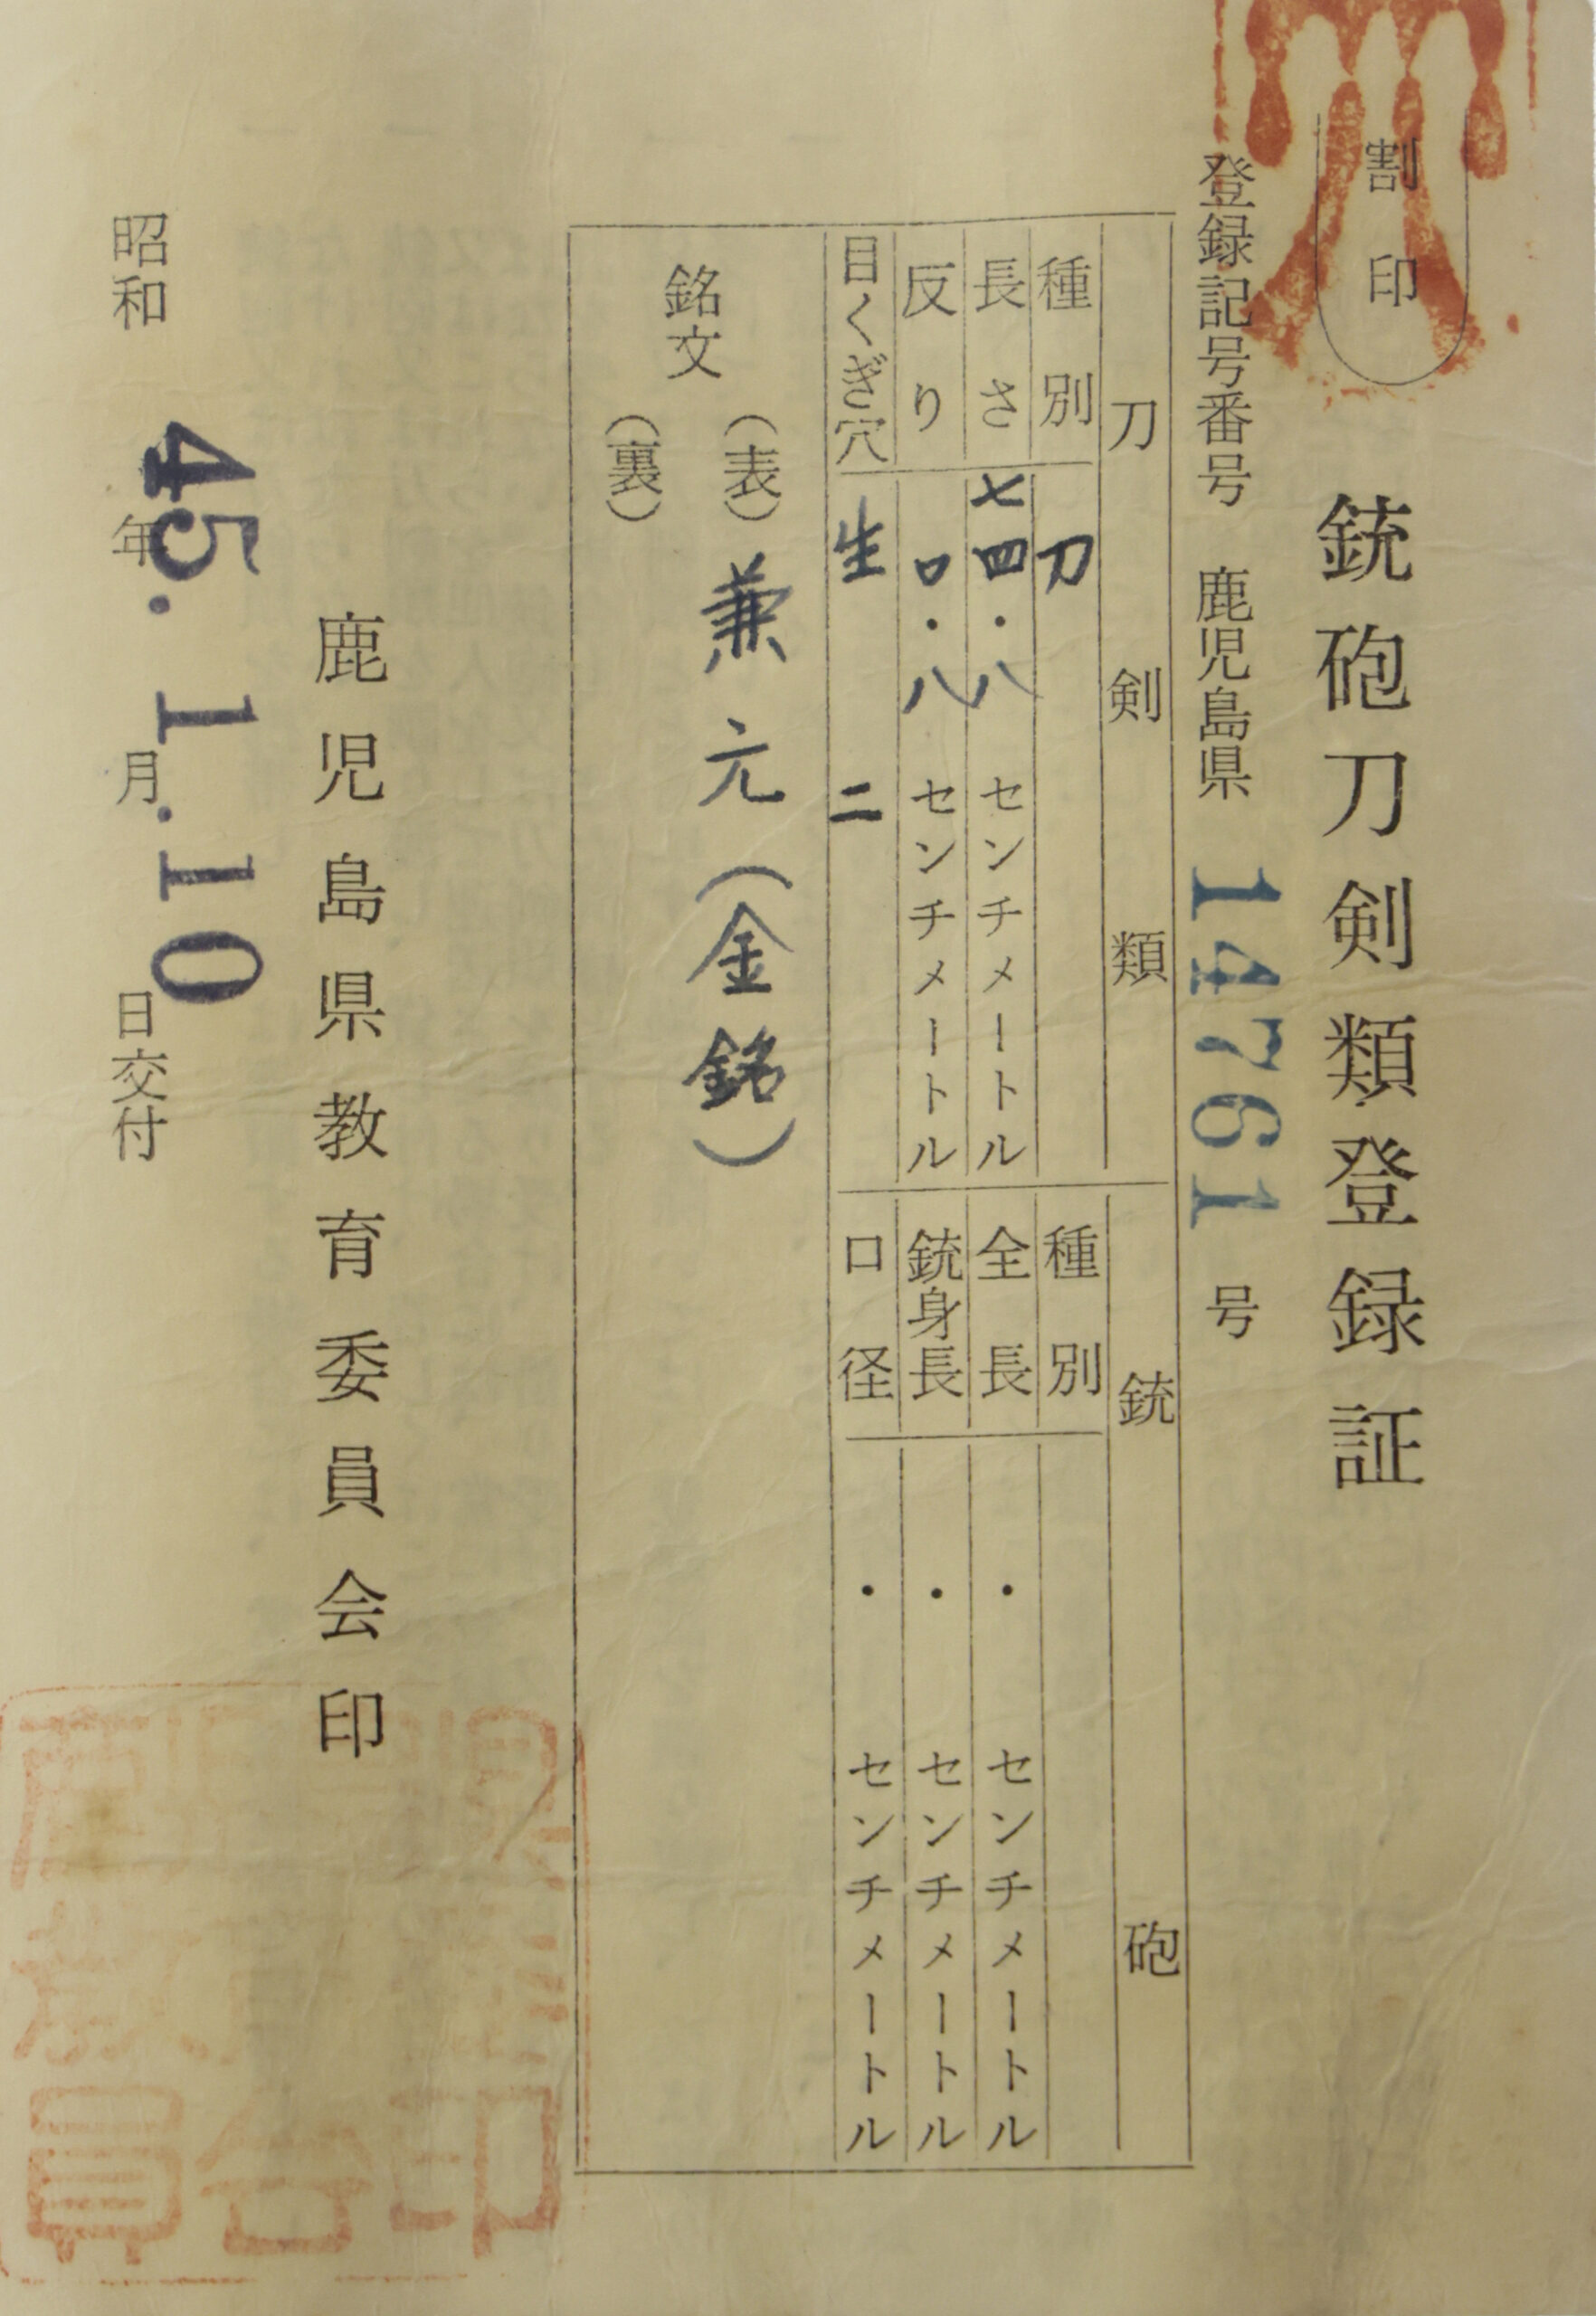 割印
銃砲刀剣類登録証
登録記号番号 鹿児島県 14761 号
刀剣類
種別 刀
長さ 七四・八 センチメートル
反り 〇・八 センチメートル
目くぎ穴 生 二
銃砲
種別
全長 ・ センチメートル
銃身長 ・ センチメートル
口径 ・ センチメートル
銘文
(表) 兼元(金銘)
(裏)
鹿児島県教育委員会印
昭和 45年. 1月. 10日交付